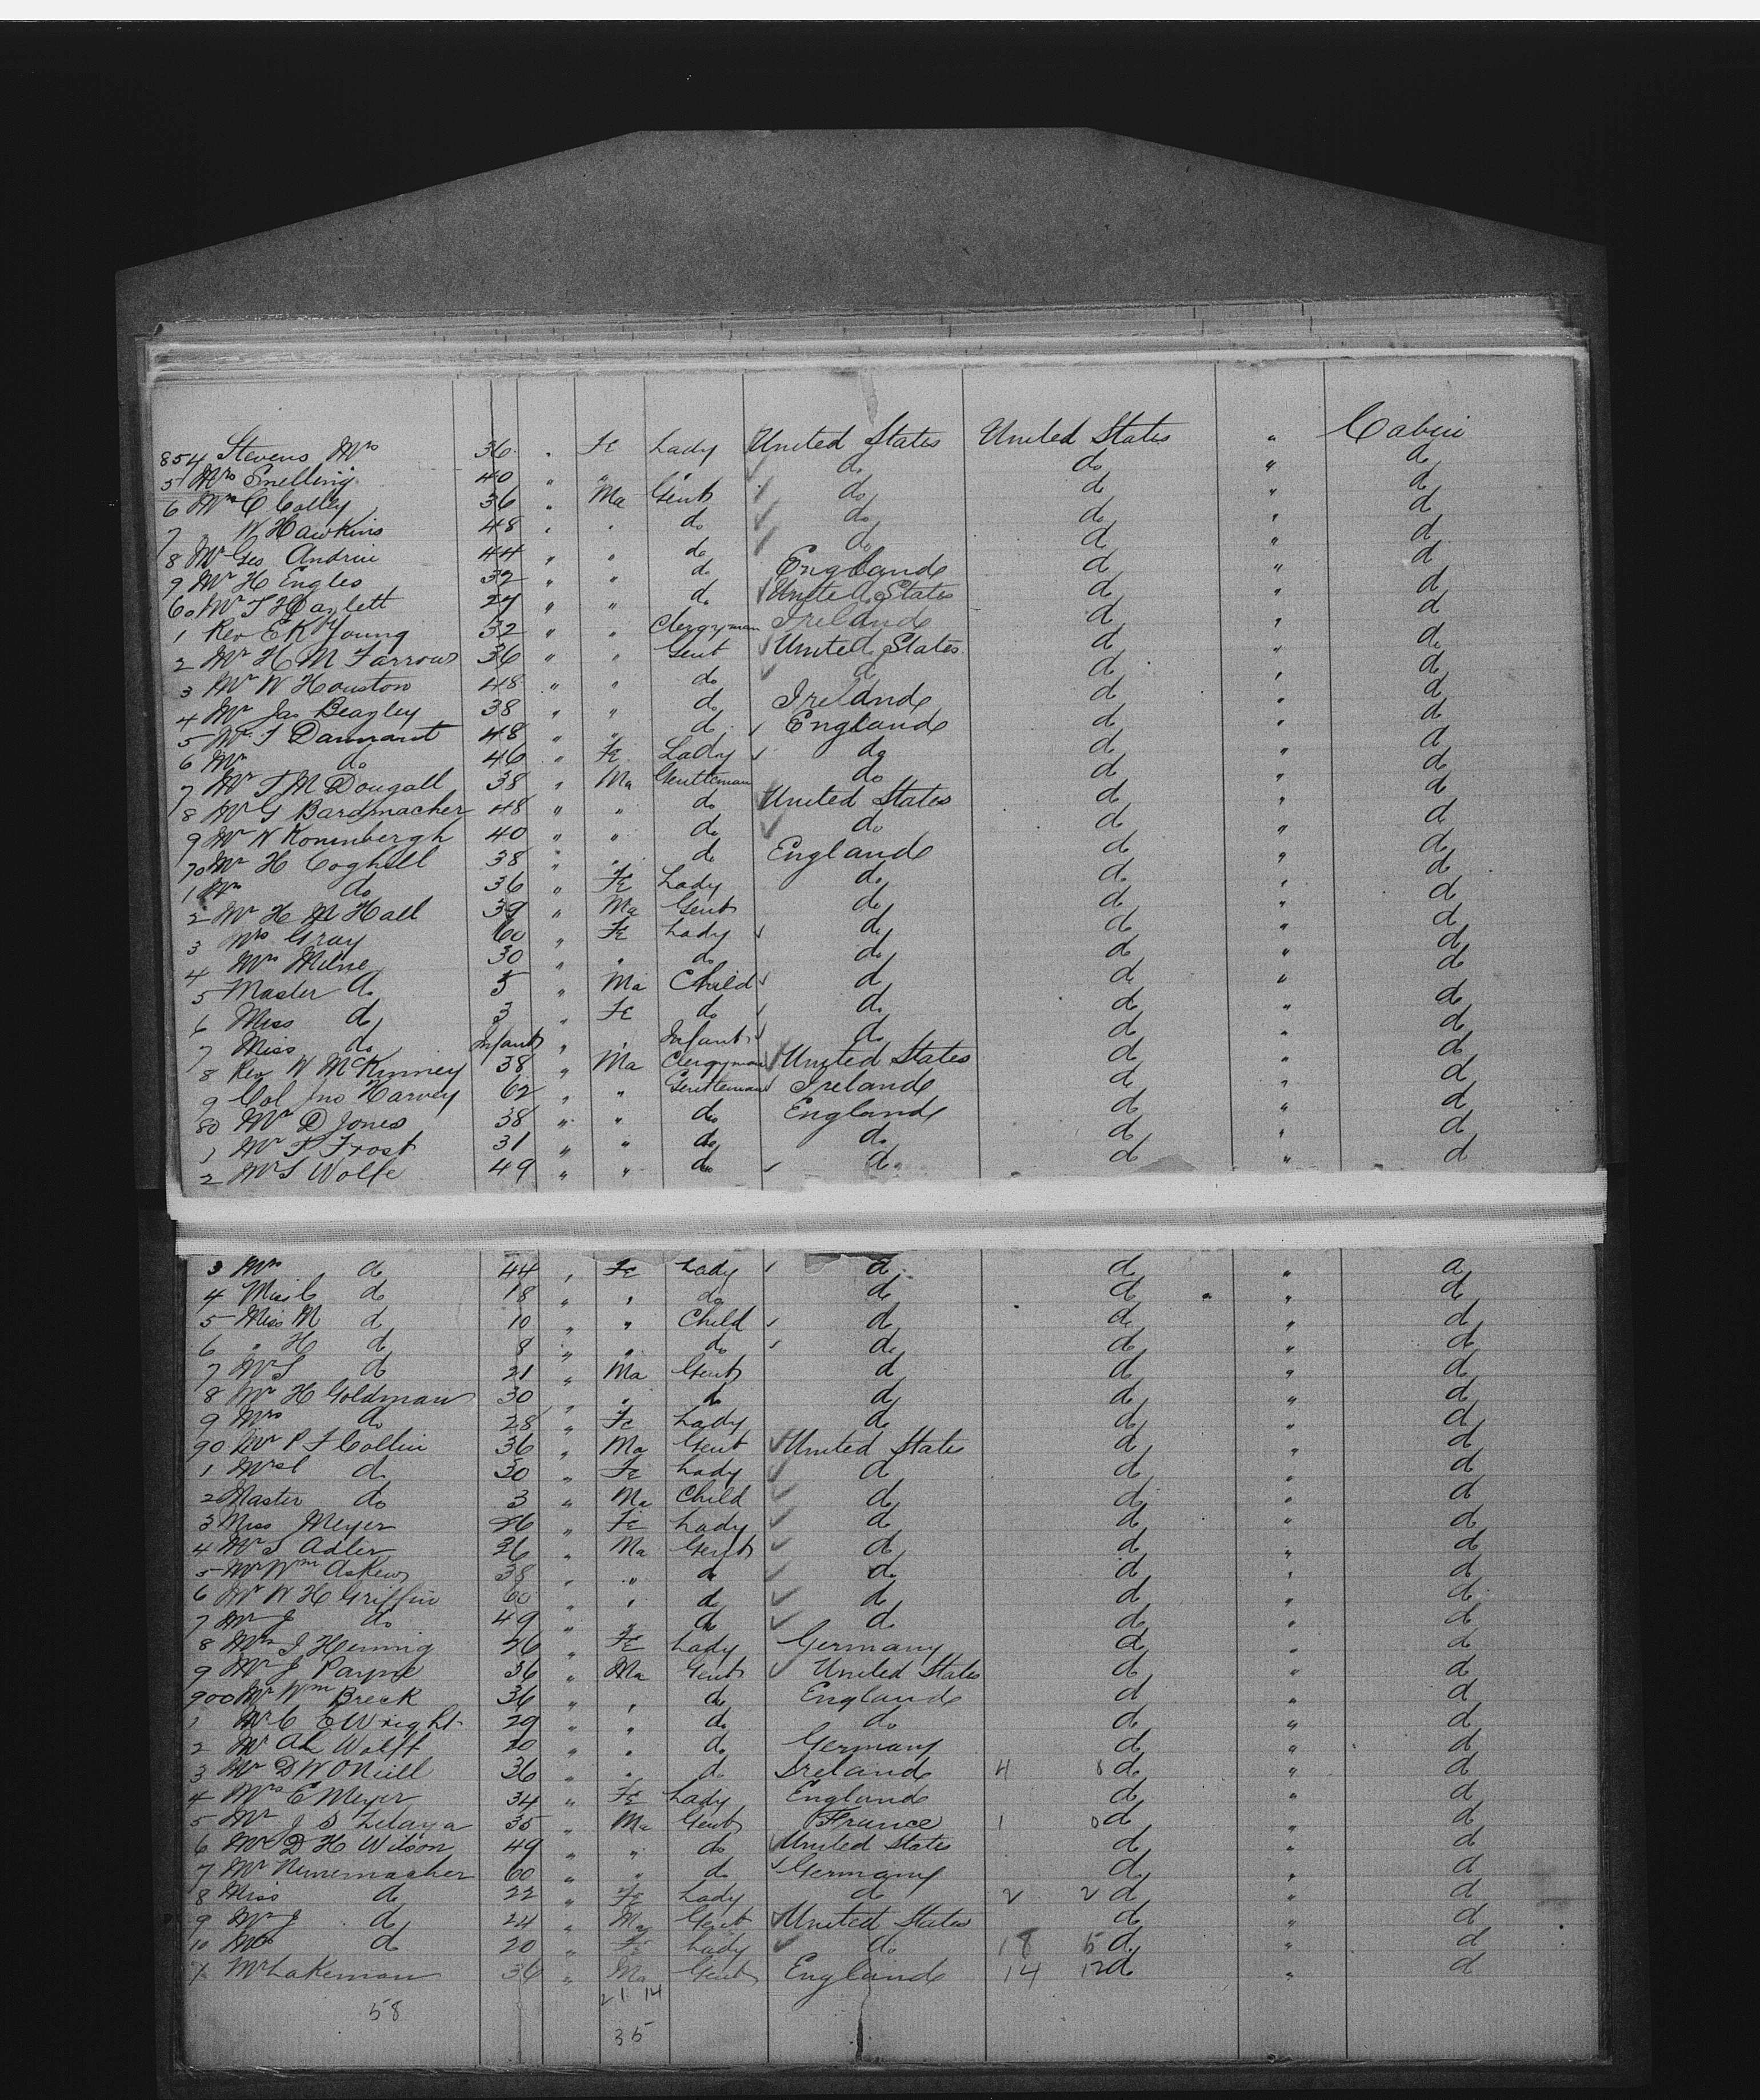 854 Stevens Mrs 36 " Fe Lady United States United States " Cabin
5 Mrs Snelling 40 " " " do do " do
6 Mr C Colley 36 " Ma Gent do do " do
7 " W Hawkins 48 " " do do do " do
8 Mr Geo Andrin 44 " " do do do " do
9 Mr H Engles 32 " " do England do " do
60 Mr T Hazlett 27 " " do United States do " do
1 Rev E K Young 32 " " Clergyman Ireland do " do
2 Mr H M Farrow 36 " " Gent United States do " do
3 Mr W Houston 48 " " do do do " do
4 Mr Jas Beagley 38 " " do Ireland do " do
5 Mr T Dannant 48 " " do England do " do
6 Mrs do 46 " Fe Lady do do " do
7 Mr T McDougall 38 " Ma Gentleman do do " do
8 Mr G Bardmacher 48 " " do United States do " do
9 Mr W Konenbergh 40 " " do do do " do
70 Mr H Coghill 38 " " do England do " do
1 Mrs do 36 " Fe Lady do do " do
2 Mr H M Hall 39 " Ma Gent do do " do
3 Mrs Gray 60 " Fe Lady do do " do
4 Mrs Milne 30 " " do do do " do
5 Master do 5 " Ma Child do do " do
6 Miss do 3 " Fe do do do " do
7 Miss do Infant " " Infant do do " do
8 Rev W McKinney 38 " Ma Clergyman United States do " do
9 Col Jno Harvey 62 " " Gentleman Ireland do " do
80 Mr D Jones 38 " " do England do " do
1 Mr T Frost 31 " " do do do " do
2 Mr S Wolfe 49 " " do do do " do
3 Mrs do 44 " Fe Lady do do " do
4 Miss C do 18 " " do do do " do
5 Miss M do 10 " " Child do do " do
6 " H do 8 " " do do do " do
7 Mr S do 21 " Ma Gent do do " do
8 Mr H Goldman 30 " " do do do " do
9 Mrs do 28 " Fe Lady do do " do
90 Mr P F Collin 36 " Ma Gent United States do " do
1 Mrs C do 30 " Fe Lady do do " do
2 Master do 3 " Ma Child do do " do
3 Miss Meyer 26 " Fe Lady do do " do
4 Mr S Adler 36 " Ma Gent do do " do
5 Mr Wm Askew 38 " " do do do " do
6 Mr W H Griffin 60 " " do do do " do
7 Mr J do 49 " " do do do " do
8 Mrs J Hennig 26 " Fe Lady Germany do " do
9 Mr J Payne 36 " Ma Gent United States do " do
900 Mr Wm Breck 36 " " do England do " do
1 Mr C E Wright 29 " " do do do " do
2 Mr Wolff 20 " " do Germany do " do
3 Mr D W ONeill 36 " " do Ireland 4 8 do " do
4 Mrs E Meyer 34 " Fe Lady England do " do
5 Mr J S 35 " Ma Gent France 1 0 do " do
6 Mr D H Wilson 49 " " do United States do " do
7 Mr Nunemacher 60 " " do Germany do " do
8 Miss do 22 " Fe Lady do 2 2 do " do
9 Mr J do 24 " Ma Gent United States do " do
10 Mrs do 20 " Fe Lady do 18 5 do " do
1 Mr Lakeman 36 " Ma Gent England 14 12 do " do
58 21 14
35